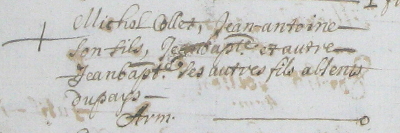 Michol Collet, Jean antoine
son fils, Jeanbapt.e et autre
Jeanbapt.e ses autres fils absents
du pays
Arm. o